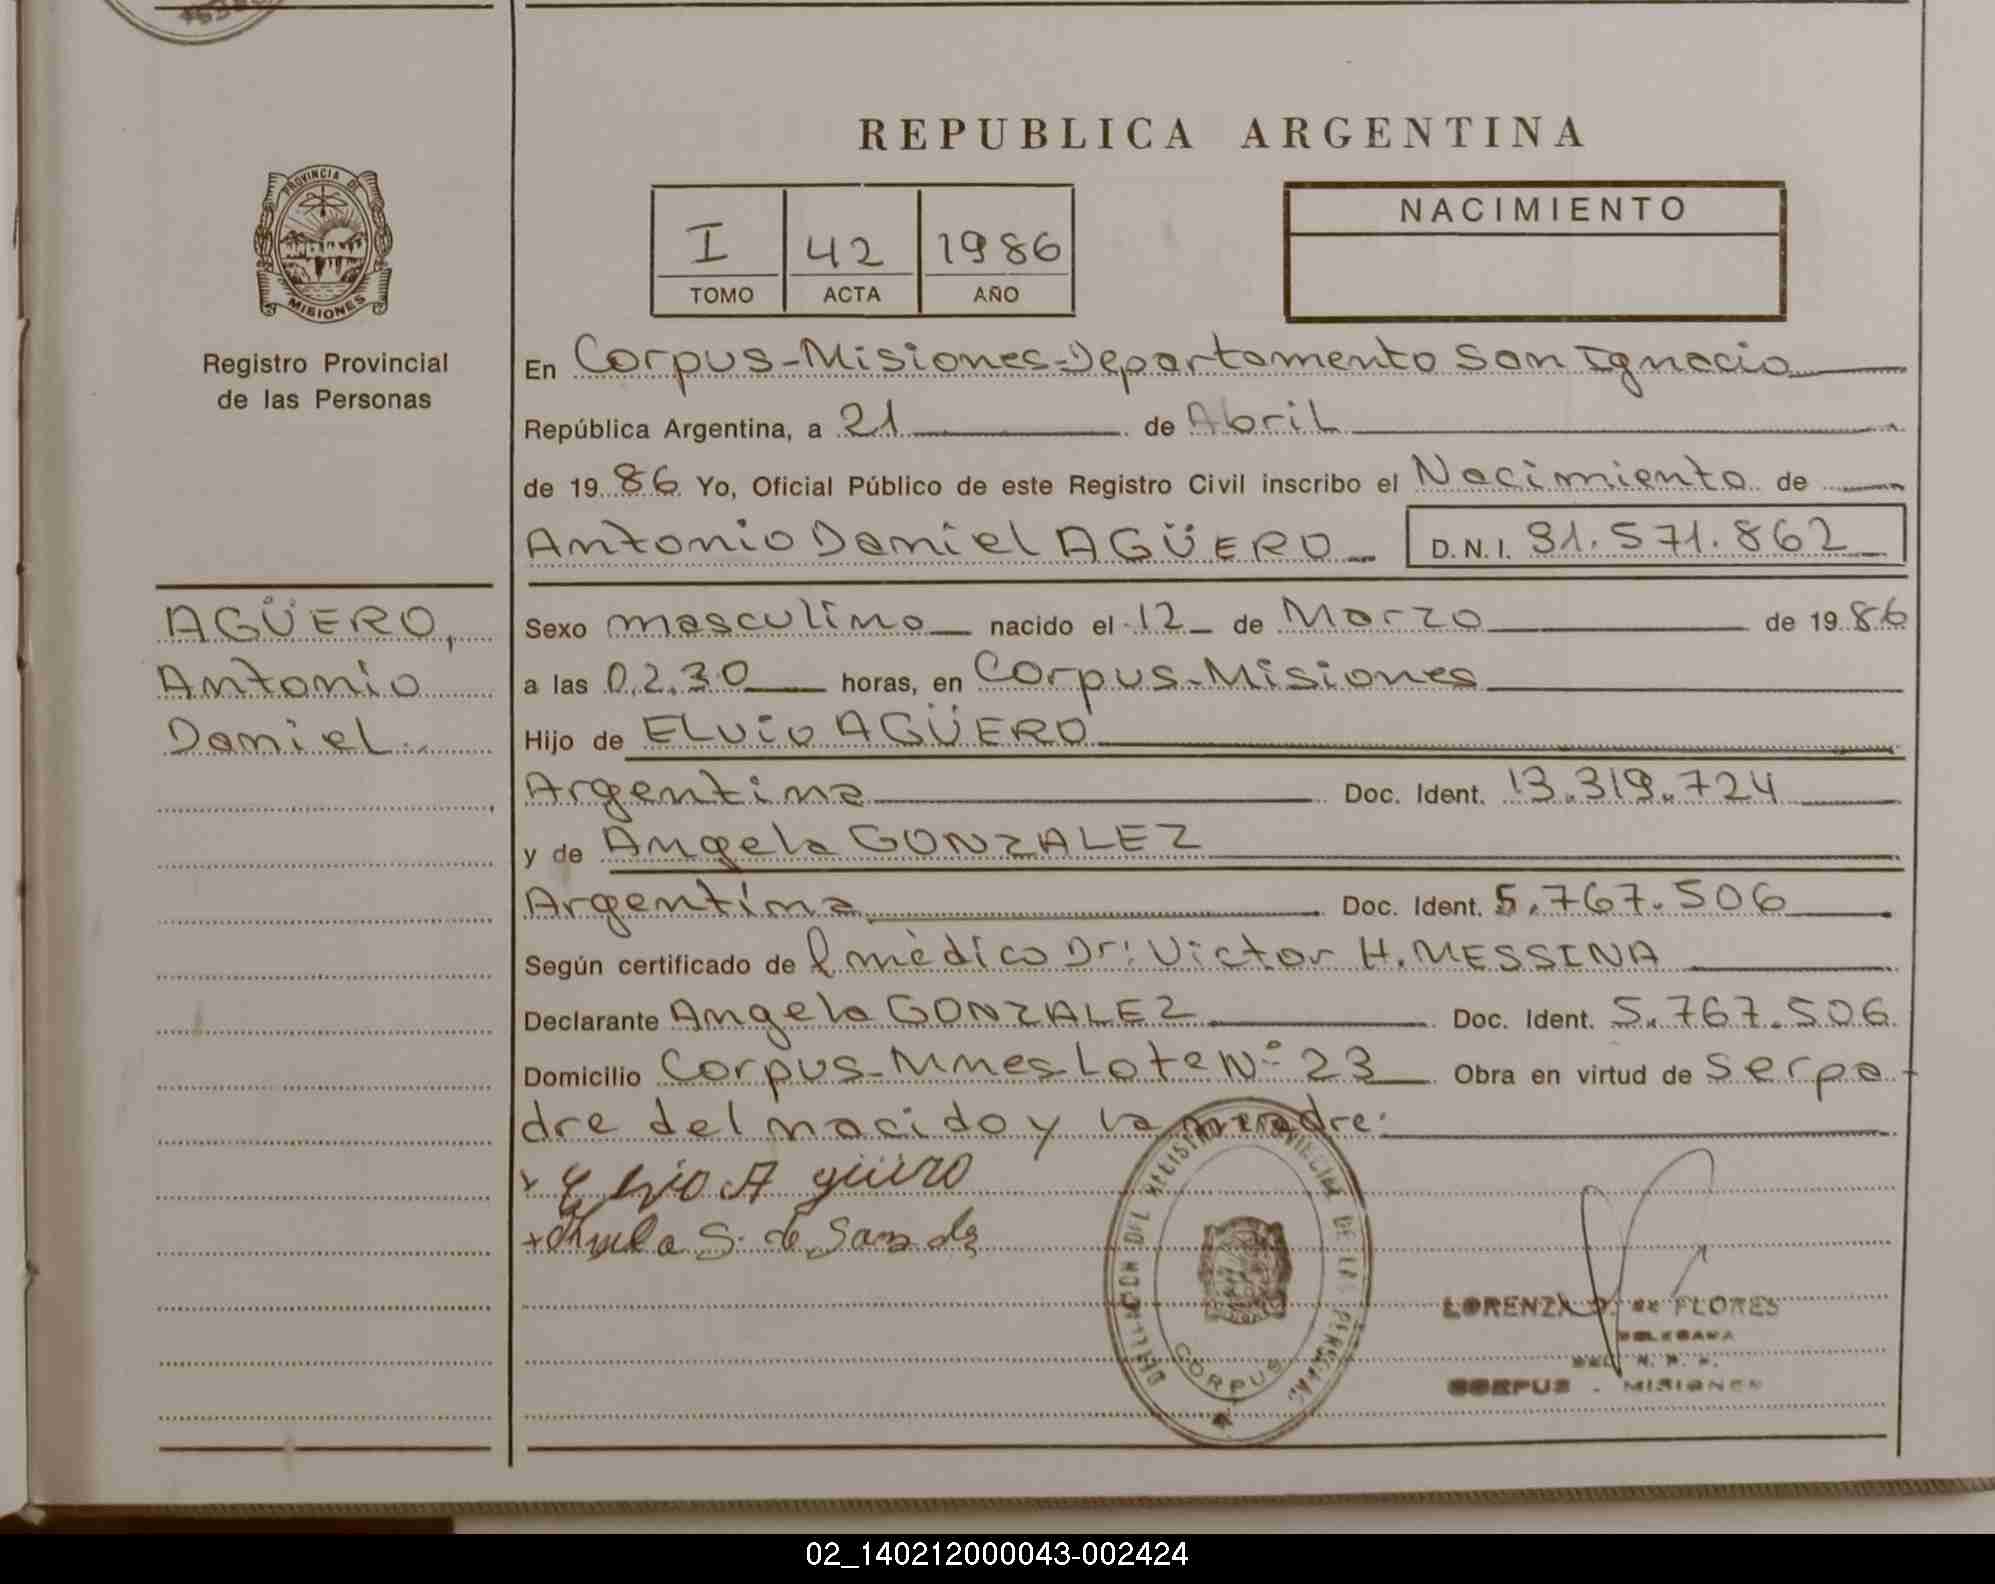 REPUBLICA ARGENTINA
PROVINCIA DE
MISIONES
Registro Provincial
de las Personas
I 42 1986
TOMO ACTA AÑO
NACIMIENTO
En Corpus-Misiones-Departamento San Ignacio
República Argentina, a 21 de Abril
de 1986 Yo, Oficial Público de este Registro Civil inscribo el Nacimiento de
Antonio Daniel AGÜERO D.N.I. 31.571.862
AGÜERO,
Antonio
Daniel.
Sexo masculino nacido el 12 de Marzo de 1986
a las 02.30 horas, en Corpus-Misiones
Hijo de ELvio AGÜERO
Argentina Doc. Ident. 13.319.724
y de Angela GONZALEZ
Argentina Doc. Ident. 5.767.506
Según certificado de l médico Dr: Victor H. MESSINA
Declarante Angela GONZALEZ Doc. Ident. 5.767.506
Domicilio Corpus-Mnes Lote Nº 23 Obra en virtud de ser pa-
dre del nacido y la madre:
Elvio Agüero
CORPUS
LORENZA de FLORES
DELEGADA
CORPUS - MISIONES
02_140212000043-002424